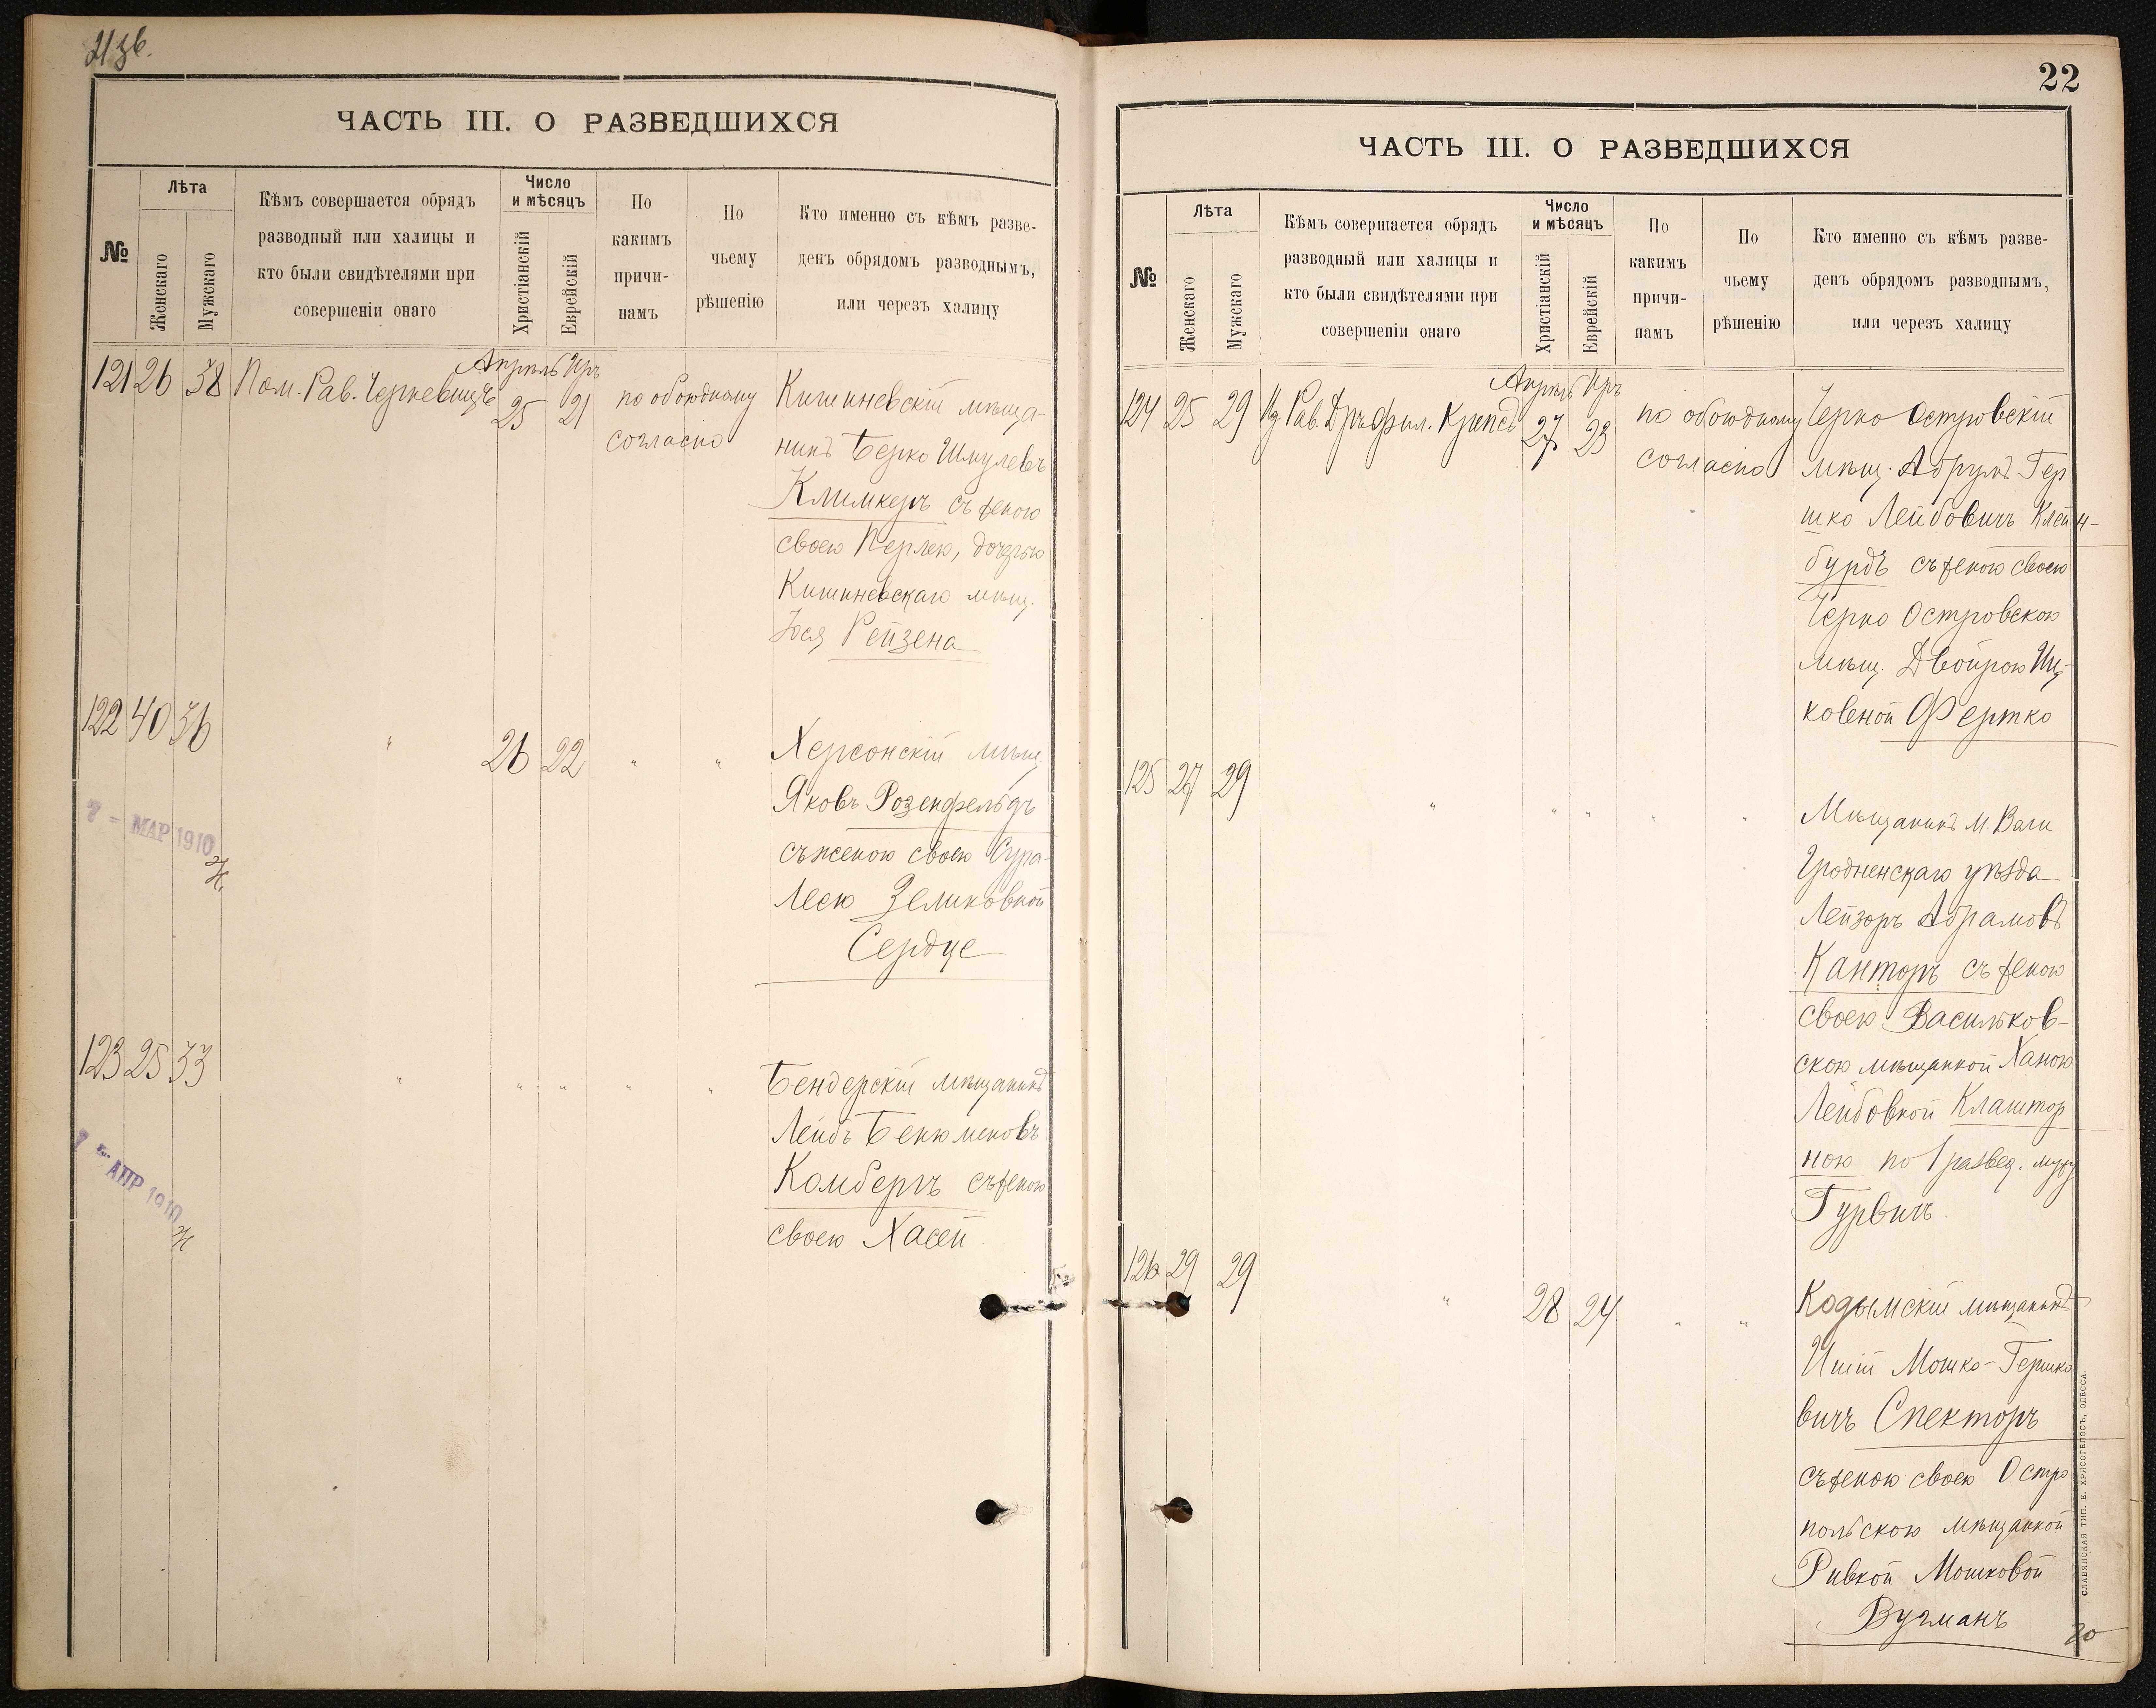 21 зв.
ЧАСТЬ III. О РАЗВЕДШИХСЯ
№
Лѣта
Женскаго
Мужскаго
Кѣмъ совершается обрядъ
разводный или халицы и
кто были свидѣтелями при
совершеніи онаго
Число
и мѣсяцъ
Христіанскій
Еврейскій
По
какимъ
причи-
намъ
По
чьему
рѣшенію
Кто именно съ кѣмъ разве-
денъ обрядомъ разводнымъ,
или черезъ халицу
121 26 38 Пом. Рав. Черкевицъ
Апрѣль Иръ
25 21
по обоюдному
согласію
Кишиневскій мѣща-
нинъ Берко Шмулевъ
Климкеръ съ женою
своею Перлею, дочерью
Кишиневскаго мѣщ.
Іося Рейзена
122 40 36 " 26 22 " "
Херсонскій мѣщ.
Яковъ Розенфельдъ
съ женою своею Сура-
Леею Зеликовной
Сердце
7 - МАР 1910
123 25 33 " " " " "
Бендерскій мѣщанинъ
Лейбъ Бенюминовъ
Комбергъ съ женою
своею Хасей
7 - АПР 1910
22
ЧАСТЬ III. О РАЗВЕДШИХСЯ
№
Лѣта
Женскаго
Мужскаго
Кѣмъ совершается обрядъ
разводный или халицы и
кто были свидѣтелями при
совершеніи онаго
Число
и мѣсяцъ
Христіанскій
Еврейскій
По
какимъ
причи-
намъ
По
чьему
рѣшенію
Кто именно съ кѣмъ разве-
денъ обрядомъ разводнымъ,
или черезъ халицу
124 25 29 Рав. Дръ фил. Крепсъ
Апрѣль Иръ
27 23
по обоюдному
согласію
Черно Островскій
мѣщ. Абрумъ Гер
шко Лейбовичъ Клейн-
бурдъ съ женою своею
Черно Островскою
мѣщ. Двойрою Иц-
ковеной Фертко
125 27 29 " " " " "
Мѣщанинъ м.
Гродненскаго уѣзда
Лейзоръ Абрамовъ
Канторъ съ женою
своею Васильков-
скою мѣщанкой Ханою
Лейбовной Клаштор
ною по 1 развед. мужу
Гурвичъ.
126 29 29 " 28 24 " "
Кодымскій мѣщанинъ
Мошко-Гершко
вичъ Спекторъ
съ женою своею Остро
польскою мѣщанкой
Ривкой Мошковой
Вугманъ
СЛАВЯНСКАЯ ТИП. Е. ХРИСОГЕЛОСЪ, ОДЕССА.